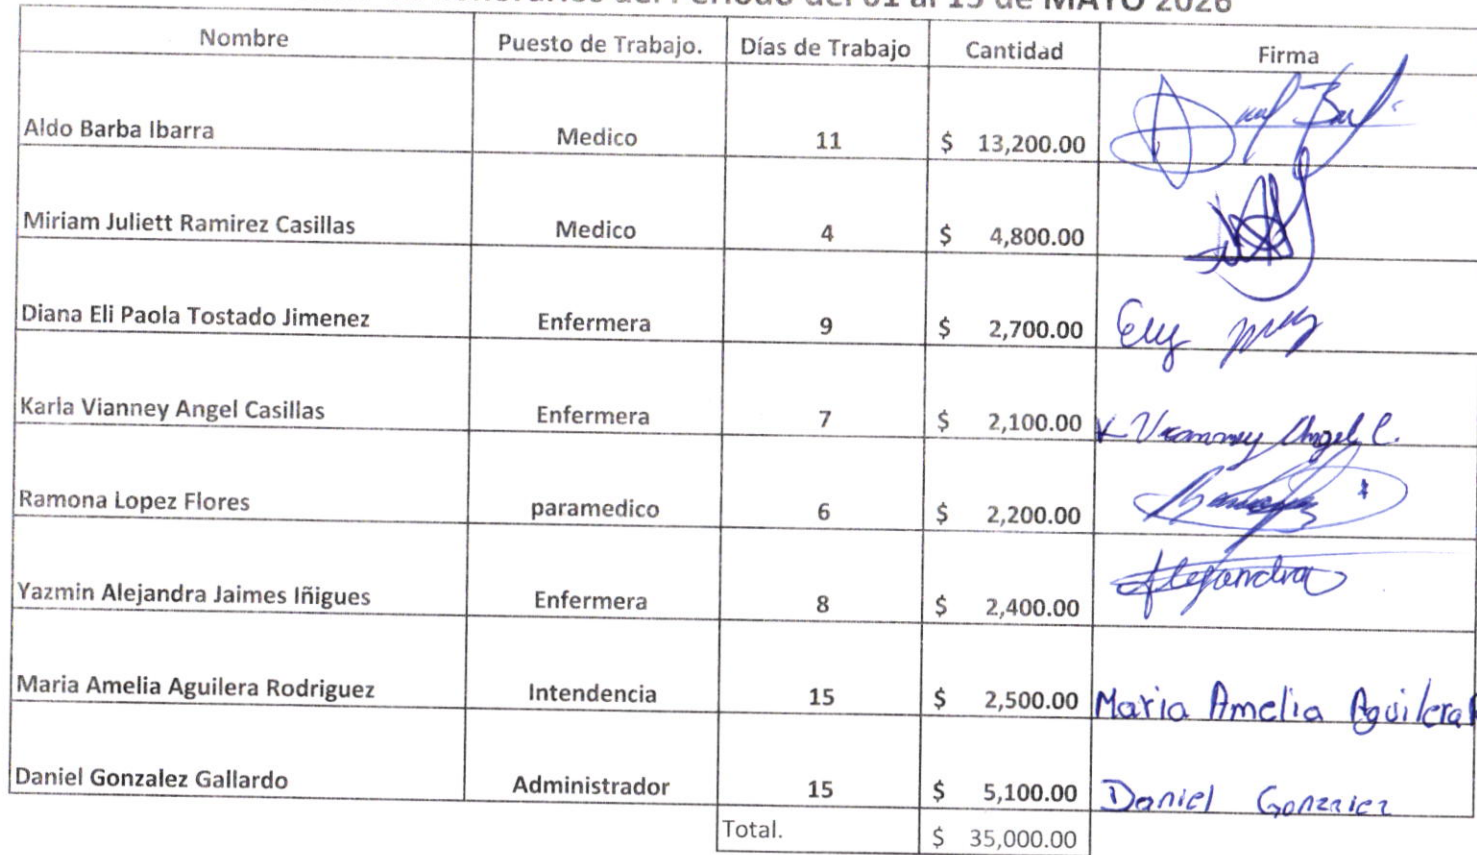 del Periodo del 01 al 15 de MAYO 2026
Nombre Puesto de Trabajo. Días de Trabajo Cantidad Firma
Aldo Barba Ibarra Medico 11 $ 13,200.00
Miriam Juliett Ramirez Casillas Medico 4 $ 4,800.00
Diana Eli Paola Tostado Jimenez Enfermera 9 $ 2,700.00 Ely
Karla Vianney Angel Casillas Enfermera 7 $ 2,100.00 K Vianney Angel C.
Ramona Lopez Flores paramedico 6 $ 2,200.00
Yazmin Alejandra Jaimes Iñigues Enfermera 8 $ 2,400.00 Alejandra
Maria Amelia Aguilera Rodriguez Intendencia 15 $ 2,500.00 Maria Amelia Aguilera
Daniel Gonzalez Gallardo Administrador 15 $ 5,100.00 Daniel Gonzalez
Total. $ 35,000.00